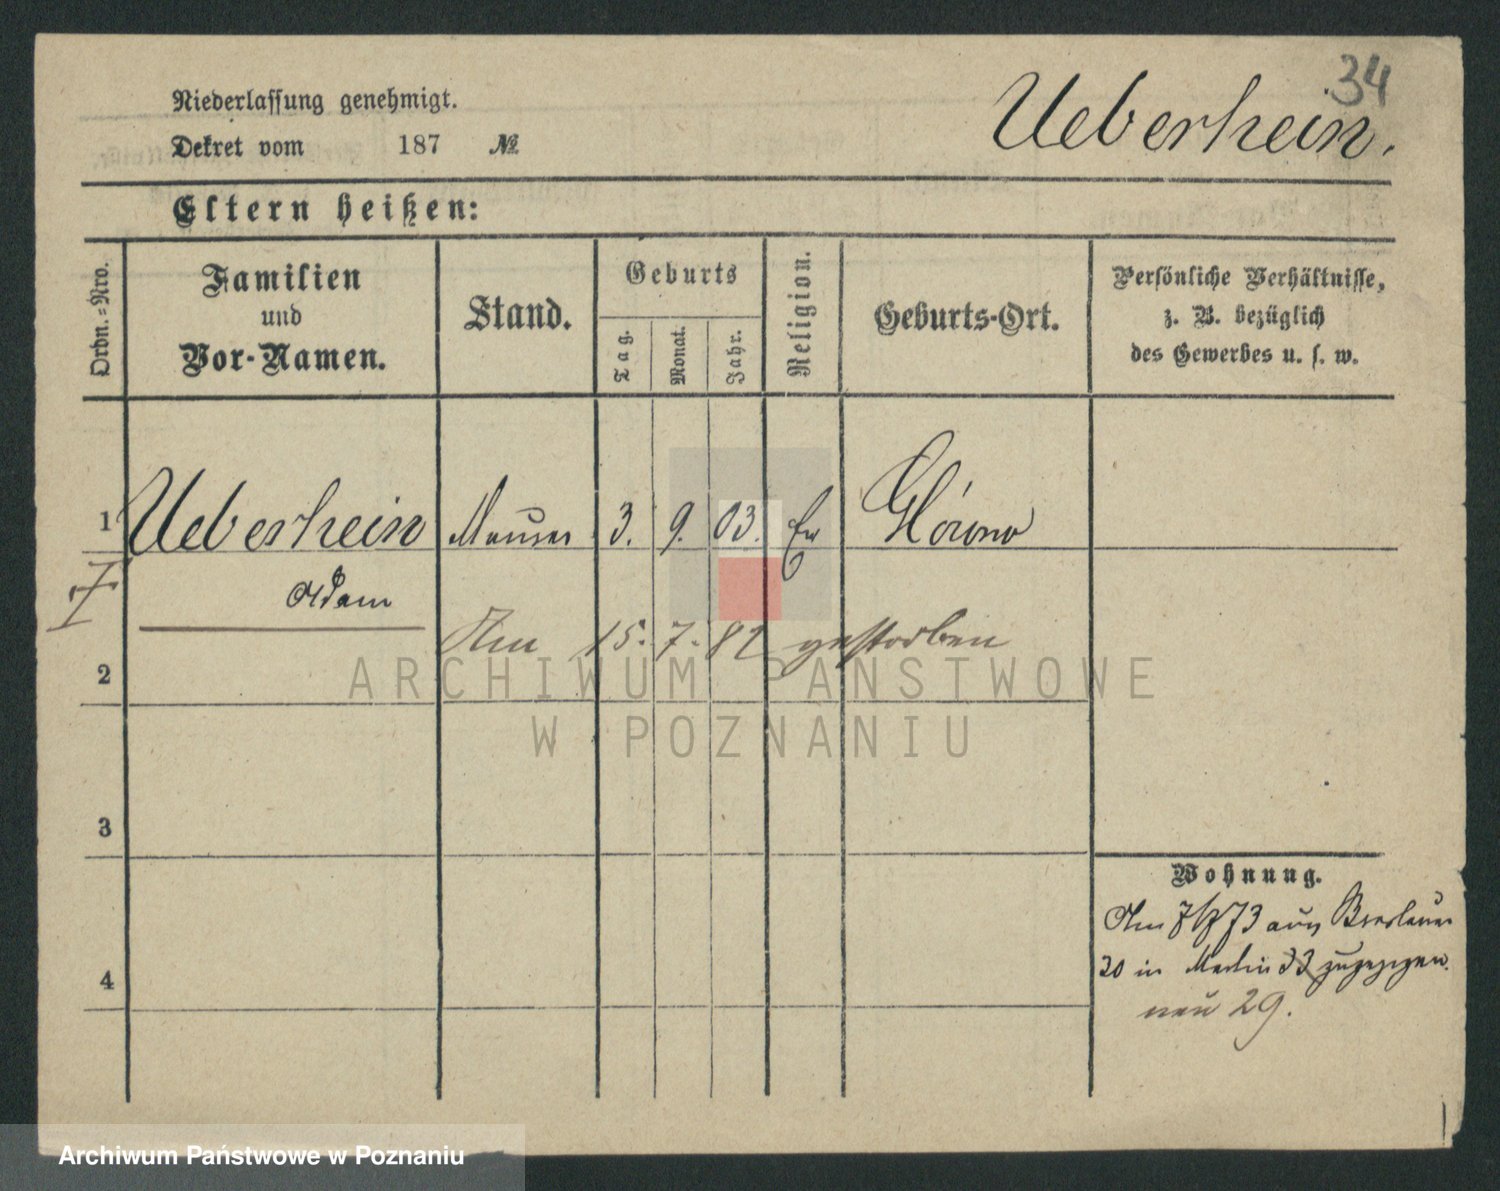 34
Niederlassung genehmigt.
Ueberhein.
Dekret vom 187 №
Eltern heißen:
Ordn.-Nro.
Familien
und
Vor-Namen.
Stand.
Geburts
Tag.
Monat.
Jahr.
Religion.
Geburts-Ort.
Persönliche Verhältnisse,
z. B. bezüglich
des Gewerbes u. s. w.
1 Ueberhein Maurer 3. 9. 03. Ev Glówno
Adam
Am 15. 7. 82 gestorben
2
3
4
Wohnung.
Am 7/7 73 aus Breslauer
20 in 33 zugezogen.
neu 29.
ARCHIWUM PAŃSTWOWE
W POZNANIU
Archiwum Państwowe w Poznaniu